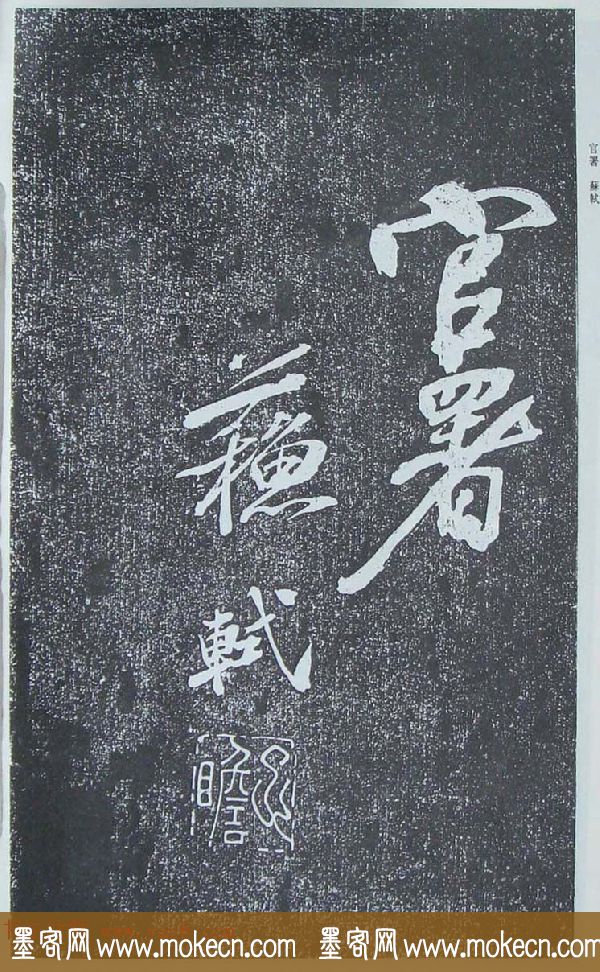 官署 蘇軾
官署
蘇軾
子瞻
墨客网www.mokecn.com 墨客网www.mokecn.com